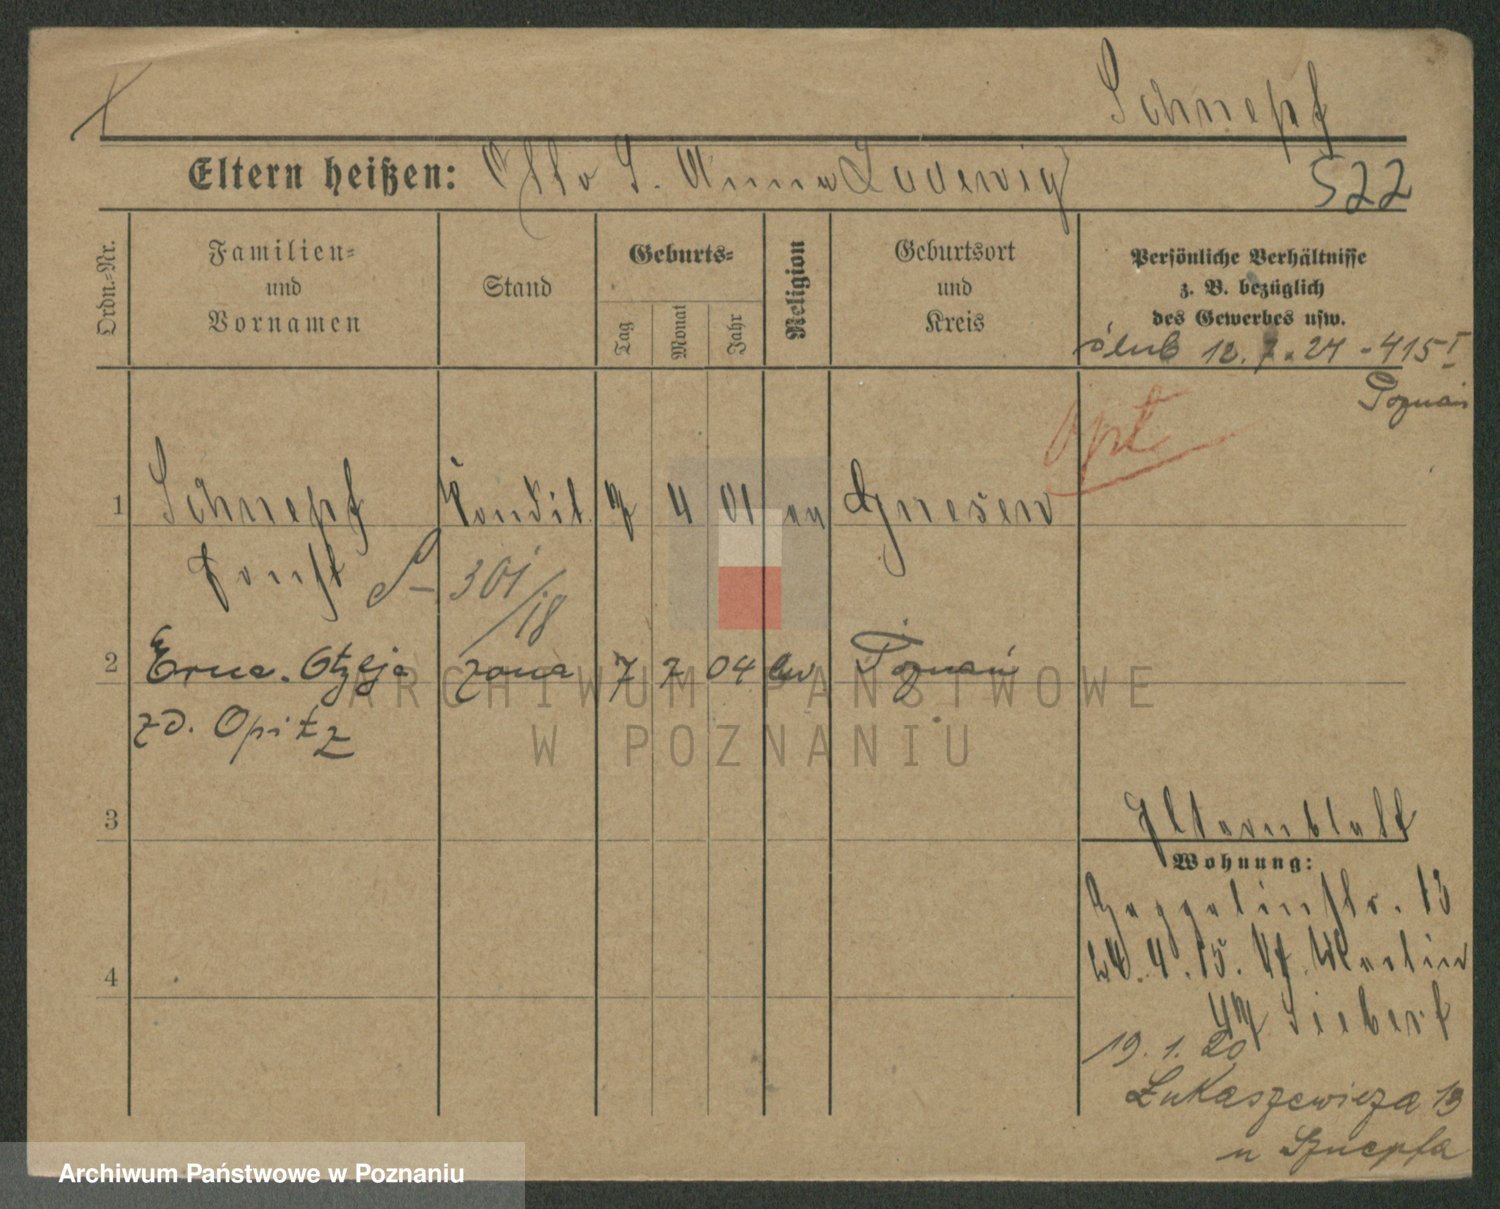 Schnepf
Eltern heißen: Otto S. Anna Ludewig
S22
Ordn.-Nr.
Familien-
und
Vornamen
Stand
Geburts-
Tag
Monat
Jahr
Religion
Geburtsort
und
Kreis
Persönliche Verhältnisse
z. B. bezüglich
des Gewerbes usw.
ślub 12.7.24 - 415 I
Poznań
Opt
1 Schnepf Kondit. 4 01 ev Gnesen
S- 301/18
2 Erna. Otylja żona 7 7 04 ew Poznań
zd. Opitz
3
Elternblatt
Wohnung:
Zeppelinstr. 13
4. 15. Martin
Siebert
4
19. 1. 20
Łukaszewicza 13
u Sznepfa
ARCHIWUM PAŃSTWOWE
W POZNANIU
Archiwum Państwowe w Poznaniu